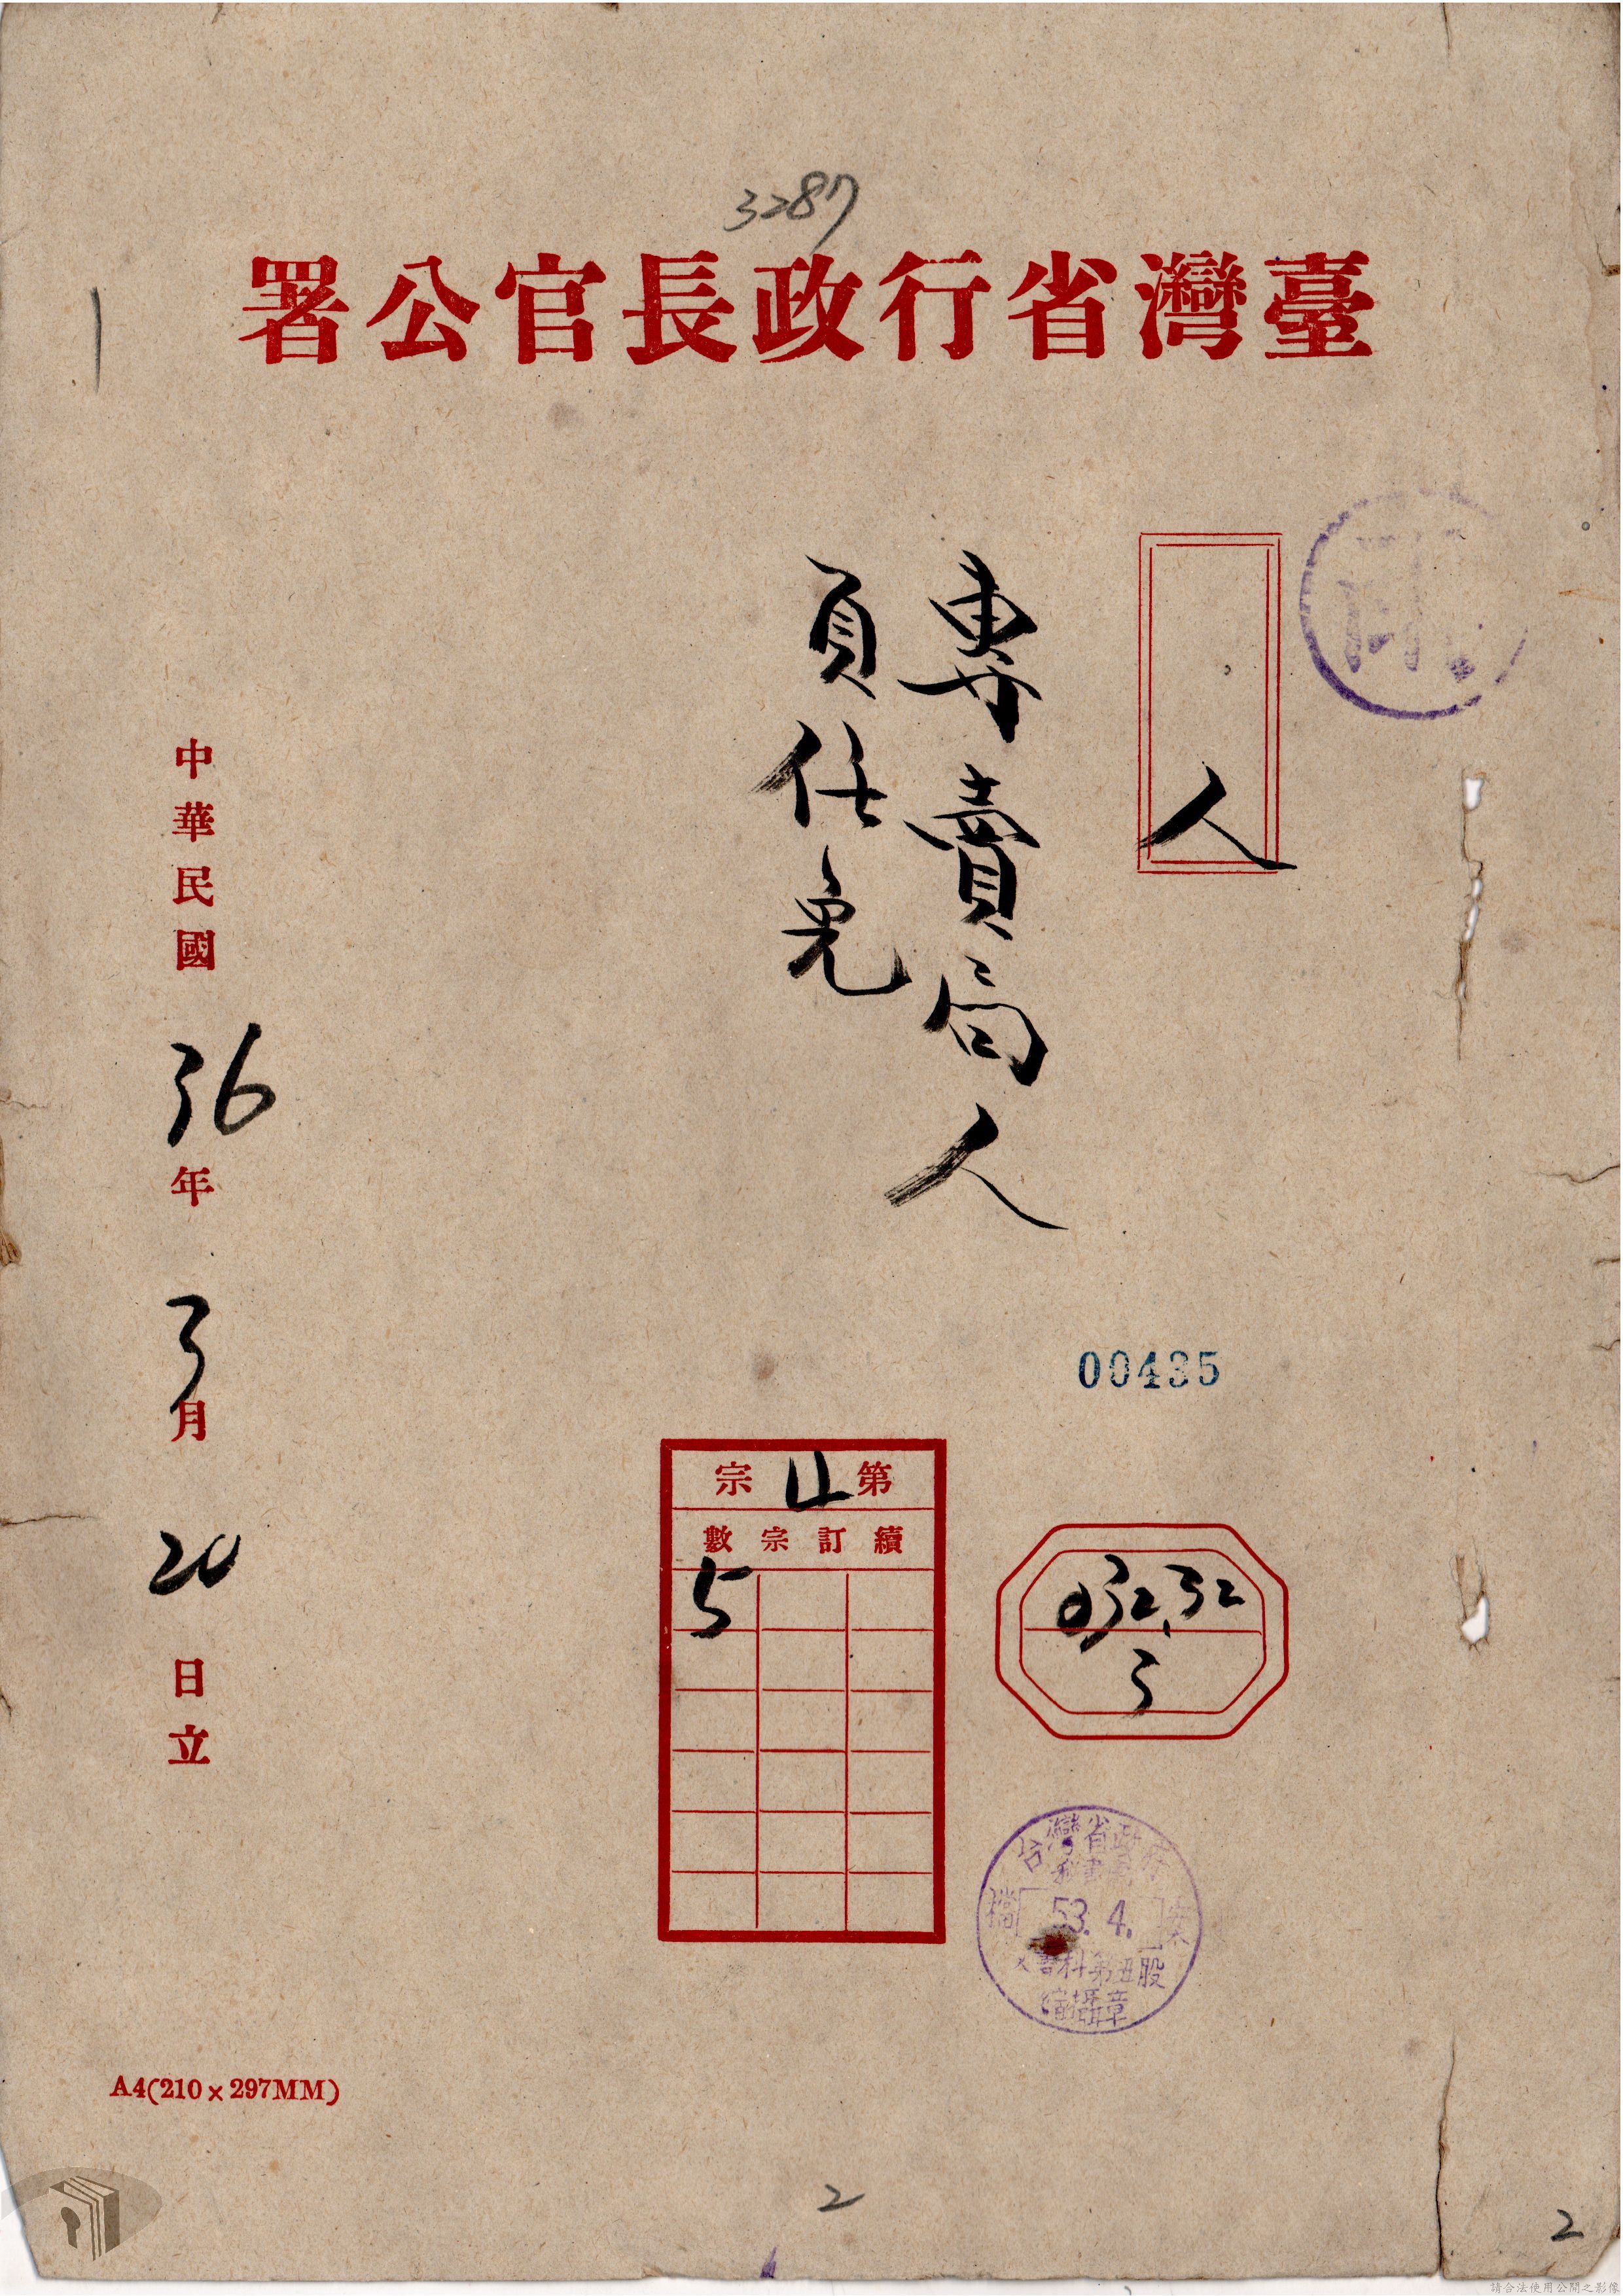 3287
臺灣省行政長官公署
人
專賣局人
員任免
00435
第 宗
續訂宗數
5
032.32
3
台灣省政府
秘書處
檔 53.4. 案
文書科第四股
攝章
中華民國36年3月20日立
A4(210×297MM)
2
2
請合法使用公開之影像